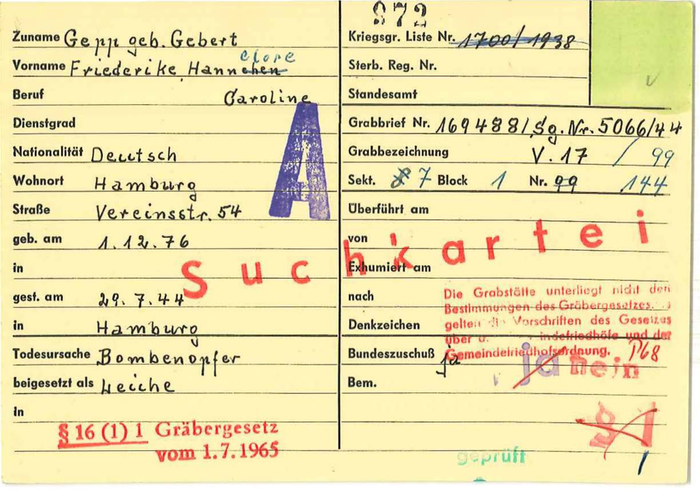 872
Zuname Gepp geb. Gebert
Vorname Friederike, Hannchen clore
Beruf Caroline
Dienstgrad
Nationalität Deutsch
Wohnort Hamburg
Straße Vereinsstr. 54
geb. am 1.12.76
in
gest. am 29.7.44
in Hamburg
Todesursache Bombenopfer
beigesetzt als Leiche
in
§ 16 (1) 1 Gräbergesetz
vom 1.7.1965
A
Suchkartei
Kriegsgr. Liste Nr. 1700/1938
Sterb. Reg. Nr.
Standesamt
Grabbrief Nr. 169488/Sg. Nr. 5066/44
Grabbezeichnung V. 17 / 99
Sekt. 7 Block 1 Nr. 99 144
Überführt am
von
Exhumiert am
nach
Denkzeichen
Bundeszuschuß ja
Bem.
Die Grabstätte unterliegt nicht den
Bestimmungen des Gräbergesetzes.
gelten die Vorschriften des Gesetzes
über indefriedhöfe und der
Gemeindefriedhofsordnung.
ja nein
§ 1
geprüft
1